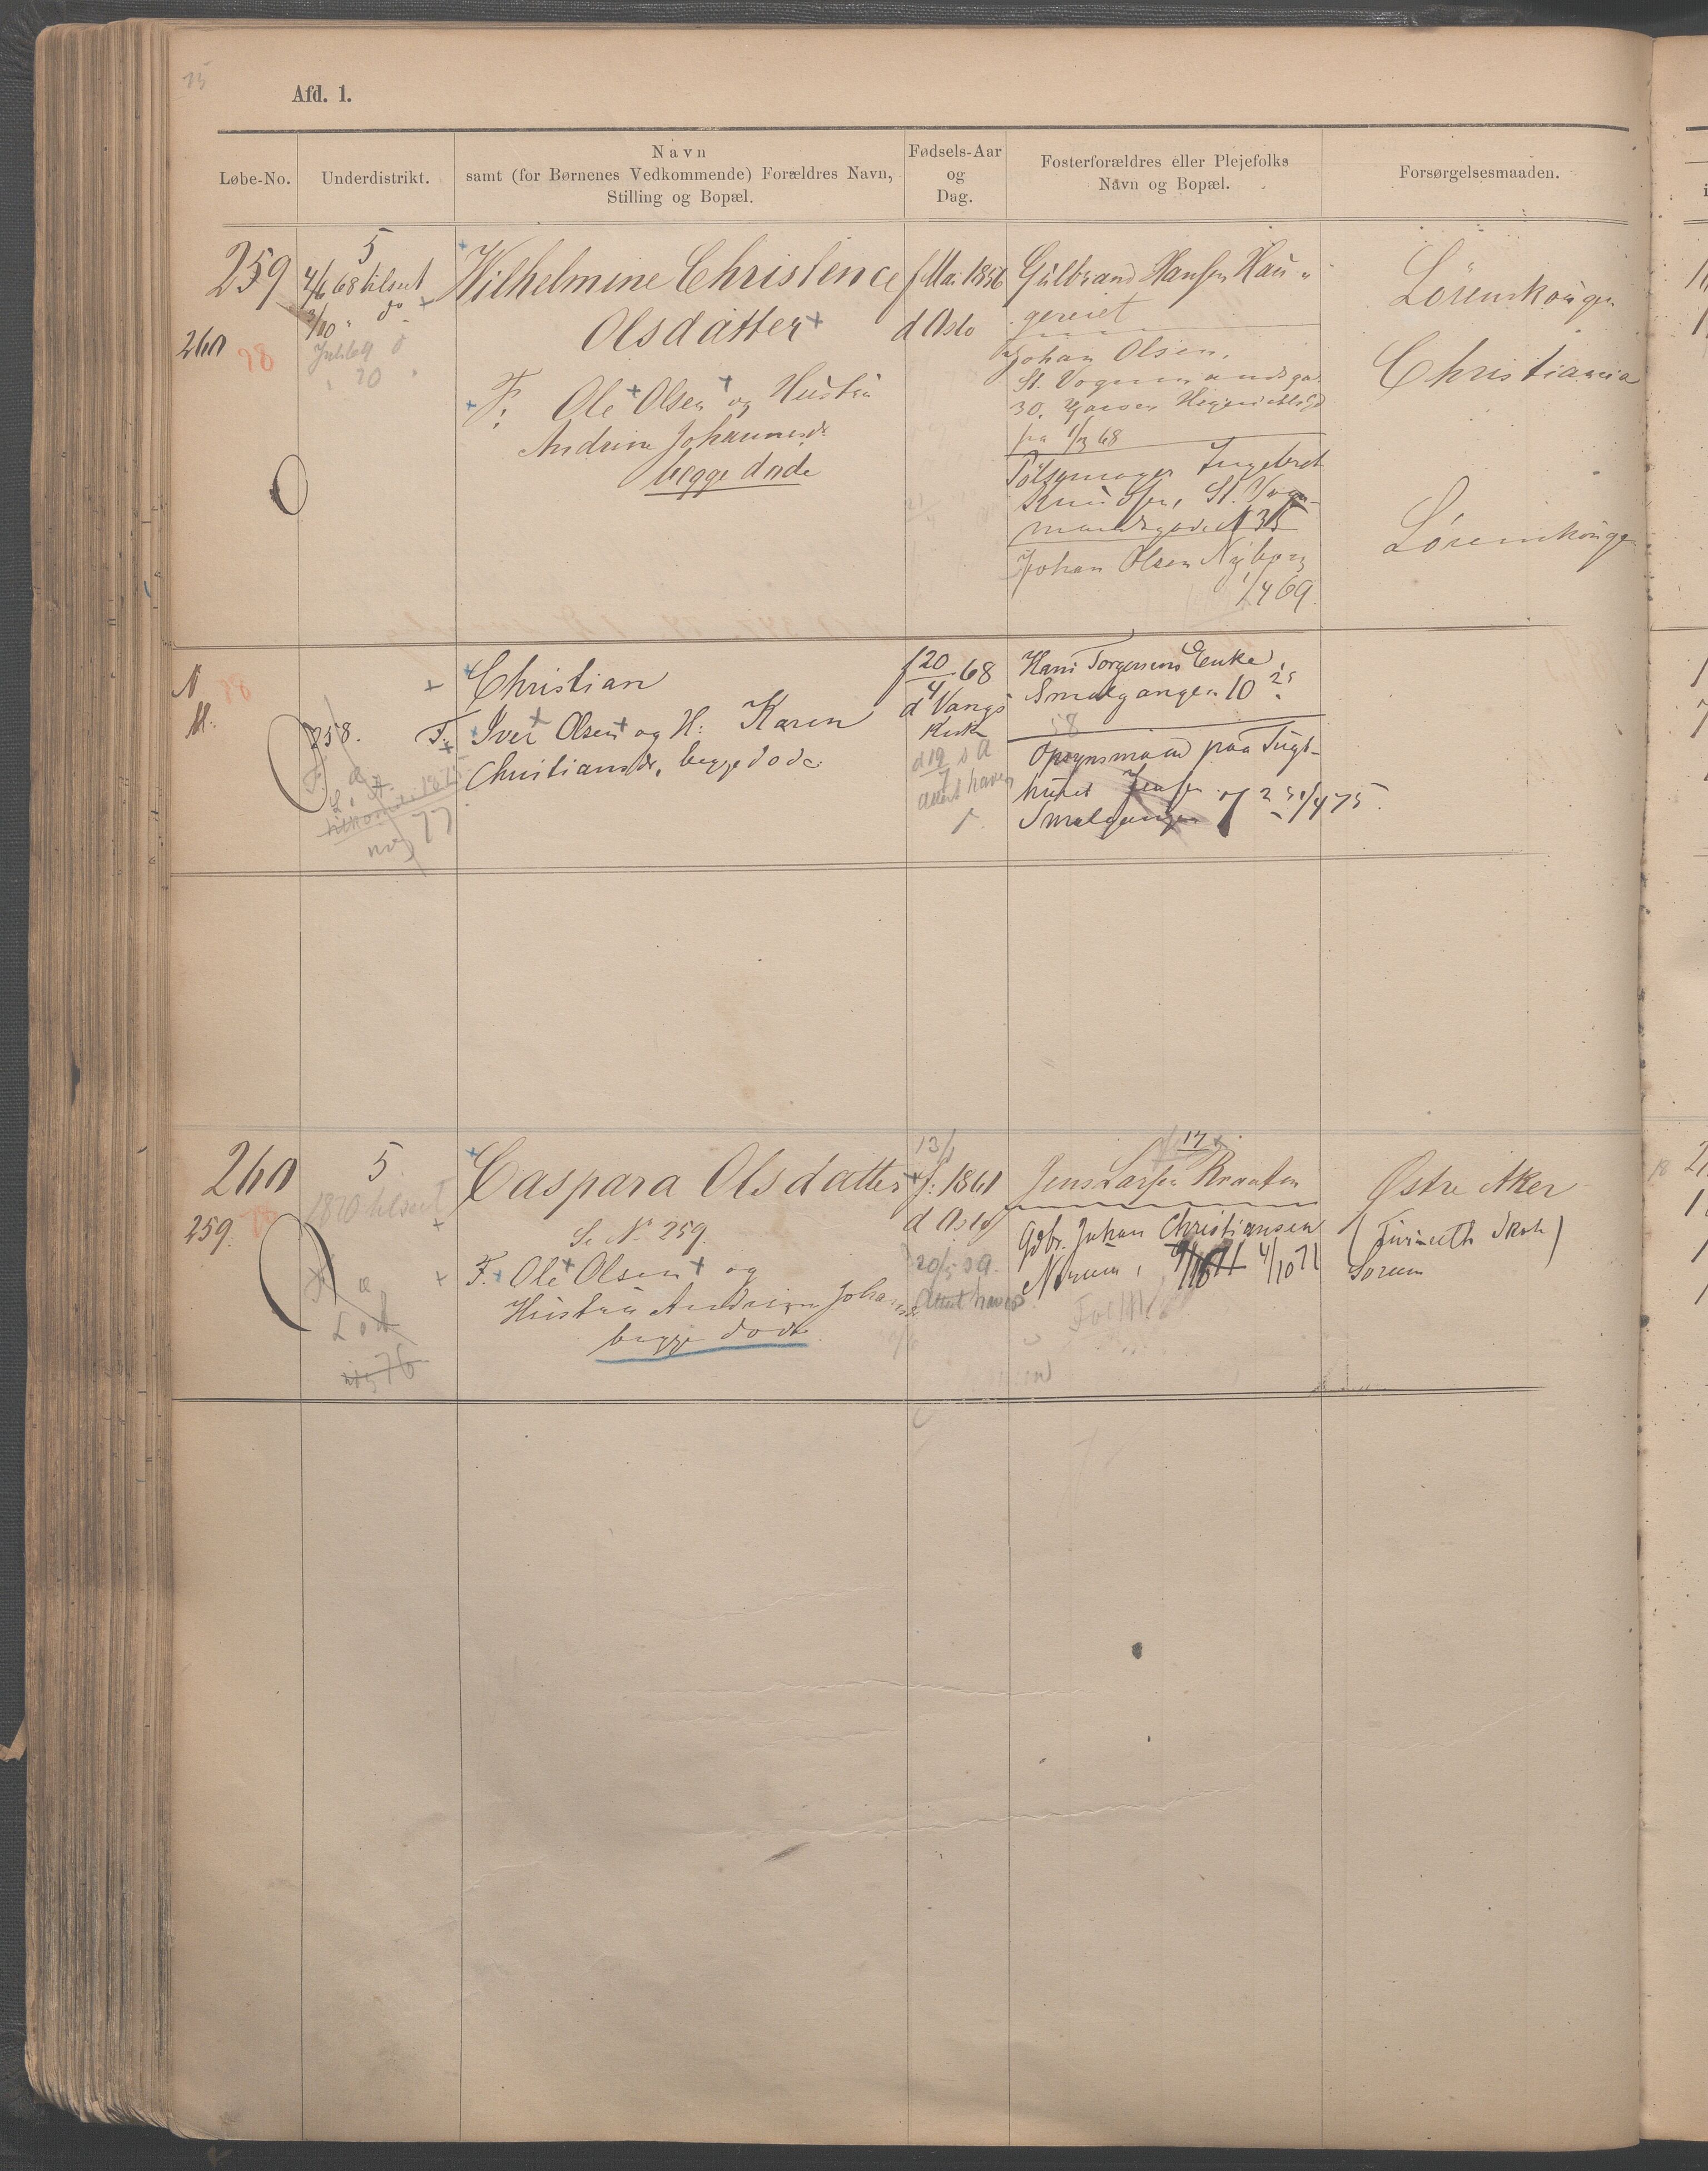 Afd. 1.
Løbe-No.
Underdistrikt.
Navn
samt (for Børnenes Vedkommende) Forældres Navn,
Stilling og Bopæl.
Fødsels-Aar
og
Dag.
Fosterforældres eller Plejefolks
Navn og Bopæl.
Forsørgelsesmaaden.
259
260
98
5
4/6 68 tilseet
3/10 " do
Juli 69
" 70
Wilhelmine Christence
Olsdatter
F: Ole Olsen og Hustru
Andrine Johannesdr
begge døde
f Mai 1856
d Oslo
Gulbrand Hansen Hau-
gereiet
Johan Olsen,
St. Vognmandsga
30,
fra 1/3 68
Pølsemager Ingebret
Knudsen, St. Vogn-
mandsgaden 35
Johan Olsen Nyborg
1/4 69
Lørenskougen
Christiania
Lørenskougen
N
98
258.
77
Christian
F. Iver Olsen og H: Karen
Christiansdr, begge døde
f 20/4 68
d Vangs
Kirke
d 19/7 s A
Attest haves
Hans Torgersens Enke
Smalgangen 10
Opsynsmand paa Tugt-
huset Jensen
Smalgangen 7
260
259.
5
1870 tilseet
76
Caspara Olsdatter
Se No 259.
F. Ole Olsen og
Hustru Andrine Johannesdr
begge døde.
13/1
f. 1861
d Oslo
20/5 s A.
Attest haves
17
Jens Larsen Kraaten
Gdbr. Johan Christiansen
Norum, 4/10 71
Østre Aker
Sørum